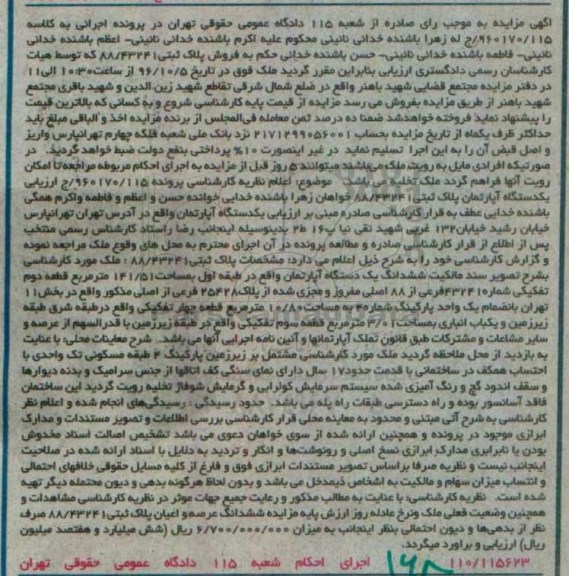 آگهی مزایده به موجب رای صادره از شعبه ۱۱۵ دادگاه عمومی حقوقی تهران در پرونده اجرائی به کلاسه
۹۶۰۱۷۰/۱۱۵/ج له زهرا باشنده خدائی نائینی محکوم علیه اکرم باشنده خدائی نائینی- اعظم باشنده خدائی
نائینی- فاطمه باشنده خدائی نائینی- حسن باشنده خدائی حکم به فروش پلاک ثبتی ۸۸/۴۳۲۴۱ که توسط هیات
کارشناسان رسمی دادگستری ارزیابی بنابراین مقرر گردید ملک فوق در تاریخ ۹۶/۱۰/۵ از ساعت ۱۰:۳۰ الی ۱۱
در دفتر مزایده مجتمع قضایی شهید باهنر واقع در ضلع شمال شرقی تقاطع شهید زین الدین و شهید باقری مجتمع
شهید باهنر از طریق مزایده بفروش می رسد مزایده از قیمت پایه کارشناسی شروع و به کسانی که بالاترین قیمت
را پیشنهاد نماید فروخته خواهدشد ضمنا ده درصد ثمن معامله فی المجلس از برنده مزایده اخذ و الباقی مبلغ باید
حداکثر ظرف یکماه از تاریخ مزایده بحساب ۲۱۷۱۲۹۹۰۵۶۰۰۱ نزد بانک ملی شعبه فلکه چهارم تهرانپارس واریز
و اصل قبض آن را به این اجرا تسلیم نماید در غیر اینصورت ۱۰% پرداختی بنفع دولت ضبط خواهد گردید. در
صورتیکه افرادی مایل به رویت ملک می باشند میتوانند ۵ روز قبل از مزایده به اجرای احکام مربوطه مراجعه تا امکان
رویت آنها فراهم گردد ملک تخلیه می باشد موضوع: اعلام نظریه کارشناسی پرونده ۹۶۰۱۷۰/۱۱۵/ج ارزیابی
یکدستگاه آپارتمان پلاک ثبتی ۸۸/۴۳۲۴۱ خواهان زهرا باشنده خدایی خوانده حسن و اعظم و فاطمه و اکرم همگی
باشنده خدایی عطف به قرار کارشناسی صادره مبنی بر ارزیابی یکدستگاه آپارتمان واقع در آدرس تهران تهرانپارس
خیابان رشید خیابان ۱۳۲ غربی شهید نقی نیا پ ۱۶ ط۲ بدینوسیله اینجانب رضا راستاد کارشناس رسمی منتخب
پس از اطلاع از قرار کارشناسی صادره و مطالعه پرونده در آن اجرای محترم به محل های وقوع ملک مراجعه نموده
و گزارش کارشناسی خود را به شرح ذیل اعلام می دارد: مشخصات پلاک ثبتی ۸۸/۴۳۲۴۱ : ملک مورد کارشناسی
بشرح تصویر سند مالکیت ششدانگ یک دستگاه آپارتمان واقع در طبقه اول بمساحت ۱۴۱/۵۱ مترمربع قطعه دوم
تفکیکی شماره ۴۳۲۴۱ فرعی از ۸۸ اصلی مفروز و مجزی شده از پلاک ۲۵۴۲۸ فرعی از اصلی مذکور واقع در بخش ۱۱
تهران بانضمام یک واحد پارکینگ شماره ۴ بمساحت ۱۰/۸۰ مترمربع قطعه چهار تفکیکی واقع درطبقه شرق طبقه
زیرزمین و یکباب انباری بمساحت ۳/۰۱ مترمربع قطعه سوم تفکیکی واقع در طبقه زیرزمین با قدرالسهم از عرصه و
سایر مشاعات و مشترکات طبق قانون تملک آپارتمانها و آئین نامه اجرایی آنها می باشد. شرح معاینات محلی: با عنایت
به بازدید از محل ملاحظه گردید ملک مورد کارشناسی مشتمل بر زیرزمین پارکینگ ۴ طبقه مسکونی تک واحدی با
احتساب همکف در ساختمانی با قدمت حدود ۱۷ سال دارای نمای سنگی کف اتاقها از جنس سرامیک و بدنه دیوارها
و سقف اندود گچ و رنگ آمیزی شده سیستم سرمایش کولرآبی و گرمایش شوفاژ تخلیه رویت گردید این ساختمان
فاقد آسانسور بوده و راه دسترسی طبقات راه پله می باشد. حدود رسیدگی: رسیدگی های انجام شده و اعلام نظر
کارشناسی به شرح آتی مبتنی و محدود به معاینه محلی قرار کارشناسی بررسی اطلاعات و تصویر مستندات و مدارک
ابرازی موجود در پرونده و همچنین ارائه شده از سوی خواهان دعوی می باشد تشخیص اصالت اسناد مخدوش
بودن یا نابرابری مدارک ابرازی نسخ اصلی و رونوشت ها و انکار و تردید به دلایل با اسناد ارائه شده در صلاحیت
اینجانب نیست و نظریه صرفا براساس تصویر مستندات ابرازی فوق و فارغ از کلیه مسایل حقوقی خلافهای احتمالی
و انتساب میزان سهام و مالکیت به اشخاص ذیمدخل می باشد و بدون لحاظ هرگونه بدهی و دیون محتمله دیگر تهیه
شده است. نظریه کارشناسی: با عنایت به مطالب مذکور و رعایت جمیع جهات موثر در نظریه کارشناسی مشاهدات و
همچنین وضعیت فعلی ملک ونرخ عادله روز ارزش پایه مزایده ششدانگ عرصه و اعیان پلاک ثبتی ۸۸/۴۳۲۴۱ صرف
نظر از بدهی ها و دیون احتمالی بنظر اینجانب به میزان ۶/۷۰۰/۰۰۰/۰۰۰ ریال (شش میلیارد و هفتصد میلیون
ریال) ارزیابی و برآورد میگردد.
۱۱۰/۱۱۵۶۲۳ اجرای احکام شعبه ۱۱۵ دادگاه عمومی حقوقی تهران